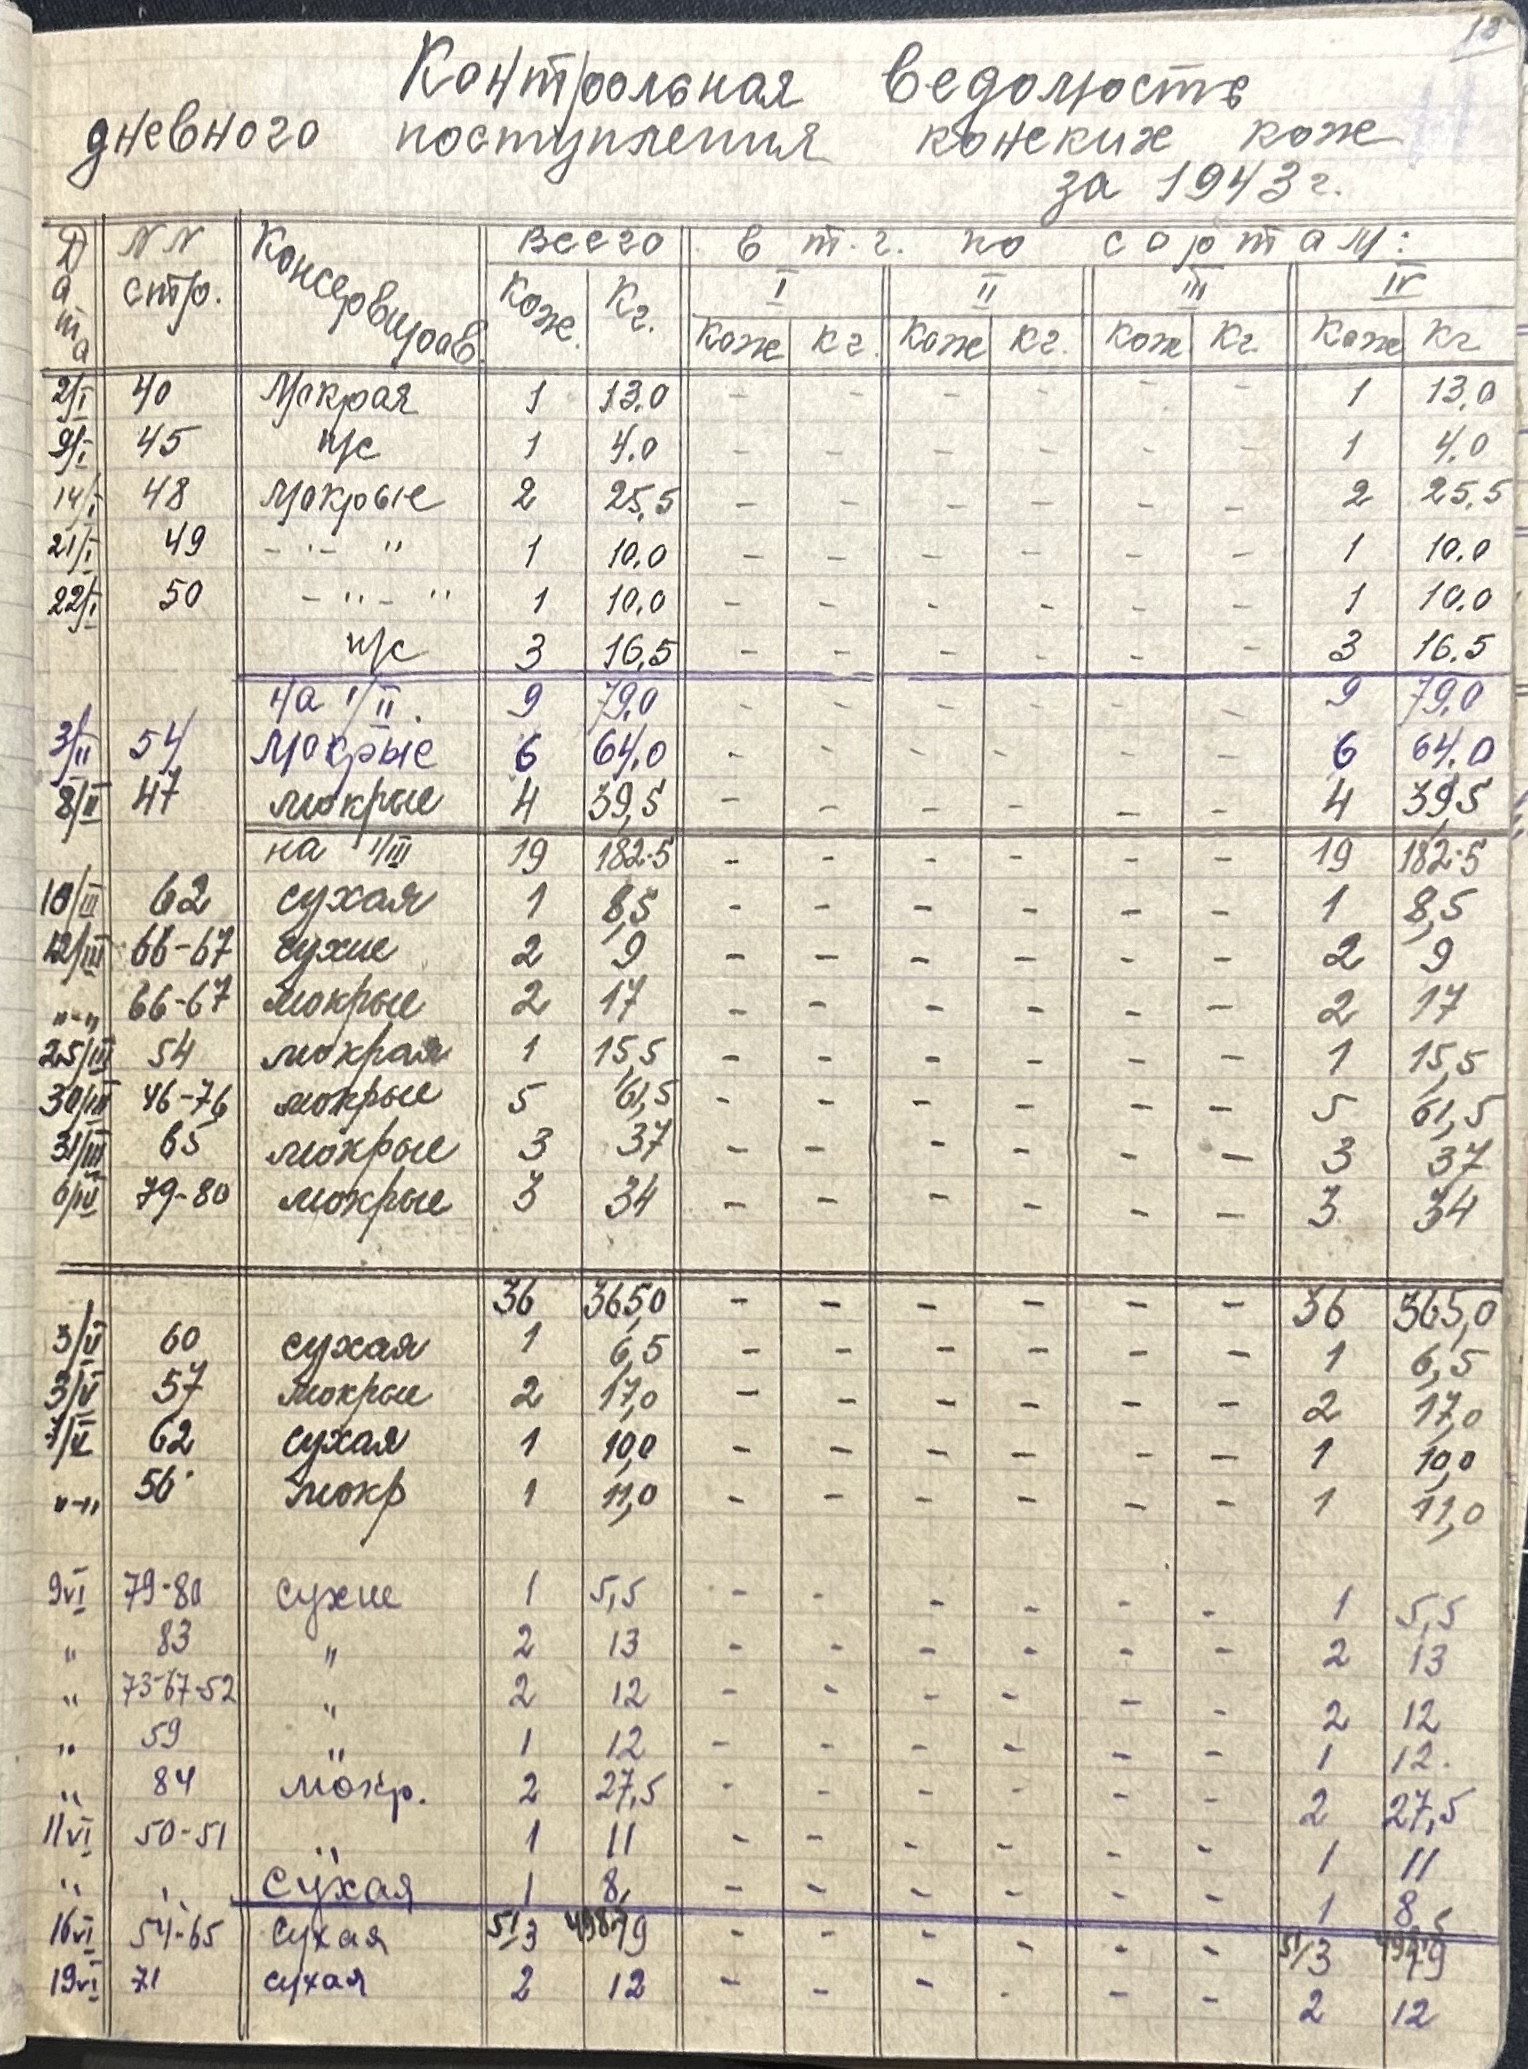 18
Контрольная ведомость
дневного поступления конских кож
за 1943 г.
Дата NN стр. Консервиров. Всего в т.ч. по сортам:
I II III IV
Кож. Кг. кож кг. кож кг. кож кг. кож кг
2/I 40 Мокрая 1 13.0 - - - - - - 1 13,0
9/I 45 п/с 1 4.0 - - - - - - 1 4.0
14/I 48 Мокрые 2 25,5 - - - - - - 2 25,5
21/I 49 - " - " 1 10.0 - - - - - - 1 10.0
22/I 50 - " - " 1 10.0 - - - - - - 1 10.0
п/с 3 16,5 - - - - - - 3 16.5
на 1/II. 9 79,0 - - - - - - 9 79,0
3/II 54 Мокрые 6 64,0 - - - - - - 6 64,0
8/II 47 мокрые 4 39,5 - - - - - - 4 39,5
на 1/III 19 182.5 - - - - - - 19 182.5
10/III 62 сухая 1 8,5 - - - - - - 1 8,5
12/III 66-67 сухие 2 9 - - - - - - 2 9
"-" 66-67 мокрые 2 17 - - - - - - 2 17
25/III 54 мокрая 1 15,5 - - - - - - 1 15,5
30/III 46-76 мокрые 5 61,5 - - - - - - 5 61,5
31/III 65 мокрые 3 37 - - - - - - 3 37
6/IV 79-80 мокрые 3 34 - - - - - - 3 34
36 365,0 - - - - - - 36 365,0
3/V 60 сухая 1 6,5 - - - - - - 1 6,5
3/V 57 мокрые 2 17,0 - - - - - - 2 17,0
7/V 62 сухая 1 10,0 - - - - - - 1 10,0
"-" 56 мокр 1 11,0 - - - - - - 1 11,0
9VI 79-80 сухие 1 5,5 - - - - - - 1 5,5
" 83 " 2 13 - - - - - - 2 13
" 73-67-52 " 2 12 - - - - - - 2 12
" 59 " 1 12 - - - - - - 1 12.
" 84 мокр. 2 27,5 - - - - - - 2 27,5
11VI 50-51 " 1 11 - - - - - - 1 11
" " сухая 1 8, - - - - - - 1 8
51/ 51/
16VI 54-65 сухая 3 19 - - - - - - 3 19
19VI 71 сухая 2 12 - - - - - - 2 12